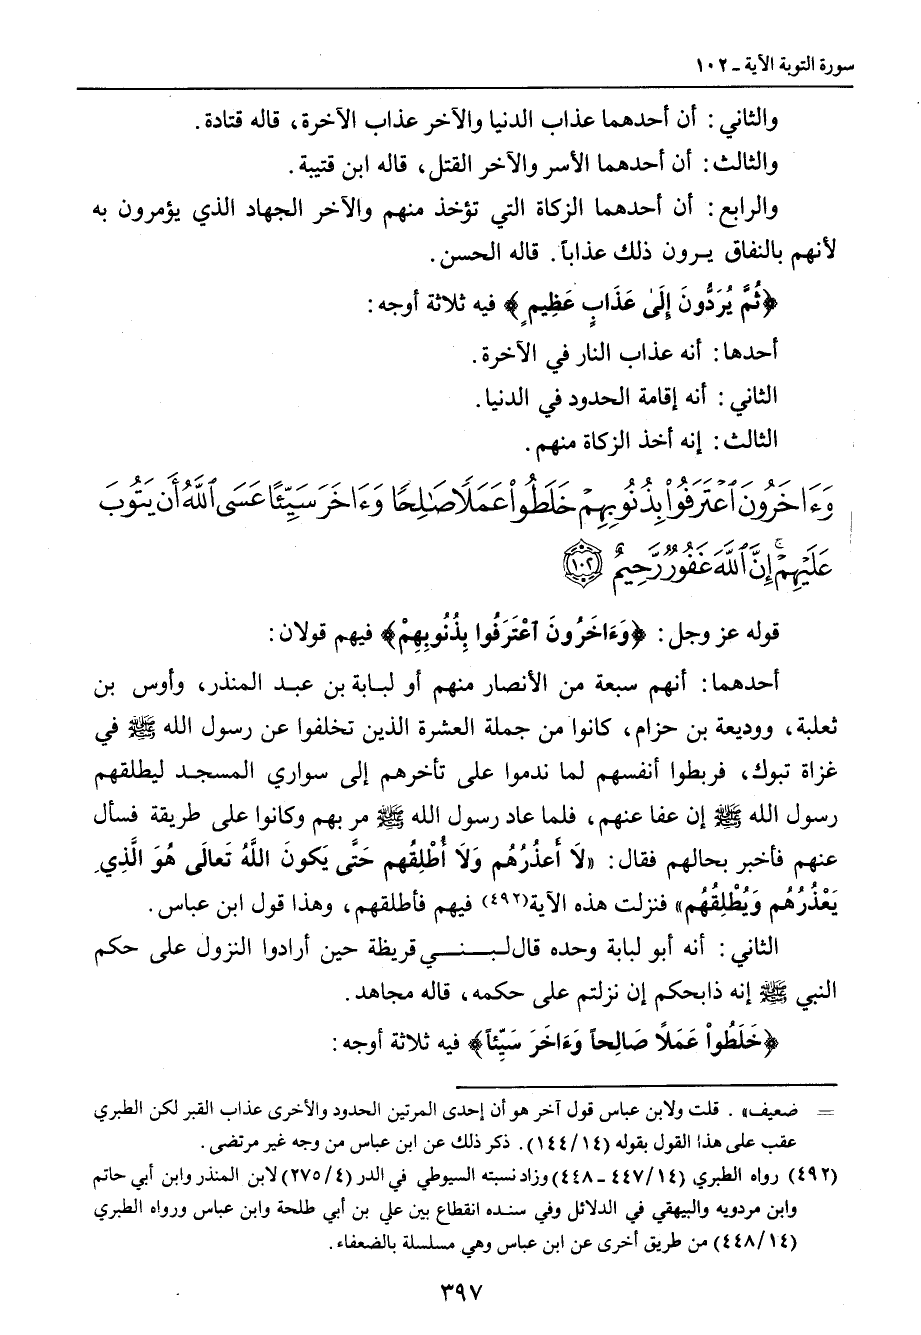 سورة التوبة الآية ـ ١٠٢
والثاني: أن أحدهما عذاب الدنيا والآخر عذاب الآخرة، قاله قتادة.
والثالث: أن أحدهما الأسر والآخر القتل، قاله ابن قتيبة.
والرابع: أن أحدهما الزكاة التي تؤخذ منهم والآخر الجهاد الذي يؤمرون به
لأنهم بالنفاق يـرون ذلك عذاباً. قاله الحسن.
﴿ثُمَّ يُرَدُّونَ إِلَىٰ عَذَابٍ عَظِيمٍ﴾ فيه ثلاثة أوجه:
أحدها: أنه عذاب النار في الآخرة.
الثاني: أنه إقامة الحدود في الدنيا.
الثالث: إنه أخذ الزكاة منهم.
وَءَاخَرُونَ ٱعْتَرَفُوا۟ بِذُنُوبِهِمْ خَلَطُوا۟ عَمَلًا صَـٰلِحًا وَءَاخَرَ سَيِّئًا عَسَى ٱللَّهُ أَن يَتُوبَ
عَلَيْهِمْ ۚ إِنَّ ٱللَّهَ غَفُورٌ رَّحِيمٌ ١٠٢
قوله عز وجل: ﴿وَءَاخَرُونَ ٱعْتَرَفُوا بِذُنُوبِهِمْ﴾ فيهم قولان:
أحدهما: أنهم سبعة من الأنصار منهم أو لبـابة بن عبـد المنذر، وأوس بن
ثعلبة، ووديعة بن حزام، كانوا من جملة العشرة الذين تخلفوا عن رسول الله ﷺ في
غزاة تبوك، فربطوا أنفسهم لما ندموا على تأخرهم إلى سواري المسجـد ليطلقهم
رسول الله ﷺ إن عفا عنهم، فلما عاد رسول الله ﷺ مر بهم وكانوا على طريقة فسأل
عنهم فأخبر بحالهم فقال: «لَا أَعذُرُهُم وَلَا أُطْلِقُهم حَتَّى يَكونَ اللَّهُ تَعالَى هُوَ الَّذِي
يَعْذُرُهُم وَيُطْلِقُهُم» فنزلت هذه الآية(٤٩٢) فيهم فأطلقهم، وهذا قول ابن عباس.
الثاني: أنه أبو لبابة وحده قال لبـنـي قريظة حين أرادوا النزول على حكم
النبي ﷺ إنه ذابحكم إن نزلتم على حكمه، قاله مجاهد.
﴿خَلَطُواْ عَمَلًا صَالِحاً وَءَاخَرَ سَيِّئاً﴾ فيه ثلاثة أوجه:
= ضعيف». قلت ولابن عباس قول آخر هو أن إحدى المرتين الحدود والأخرى عذاب القبر لكن الطبري
عقب على هذا القول بقوله (١٤/١٤٤). ذكر ذلك عن ابن عباس من وجه غير مرتضى.
(٤٩٢) رواه الطبري (١٤/٤٤٧ ـ ٤٤٨) وزاد نسبته السيوطي في الدر (٤/٢٧٥) لابن المنذر وابن أبي حاتم
وابن مردويه والبيهقي في الدلائل وفي سنده انقطاع بين علي بن أبي طلحة وابن عباس ورواه الطبري
(١٤/٤٤٨) من طريق أخرى عن ابن عباس وهي مسلسلة بالضعفاء.
٣٩٧